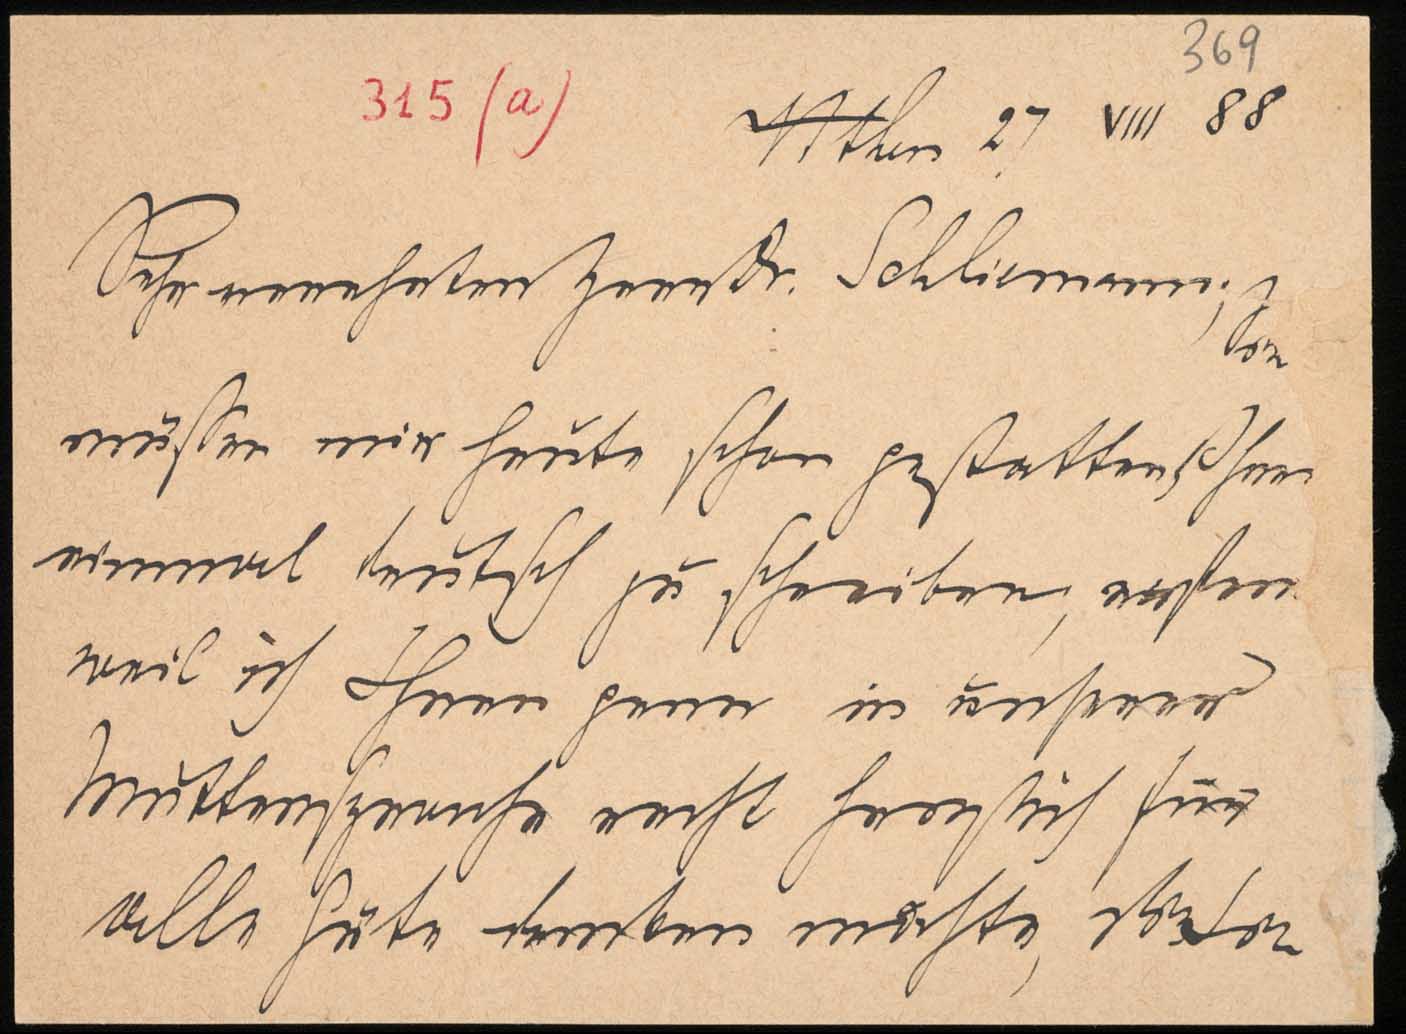 369
315 (a)
Athen 27 VIII 88
Sehr verehrter Herr Dr. Schliemann, Sie
müssen mir heute schon gestatten, Ihnen
einmal deutsch zu schreiben, erstens
weil ich Ihnen gern in unserer
Muttersprache recht herzlich für
alle Güte danken möchte, die Sie